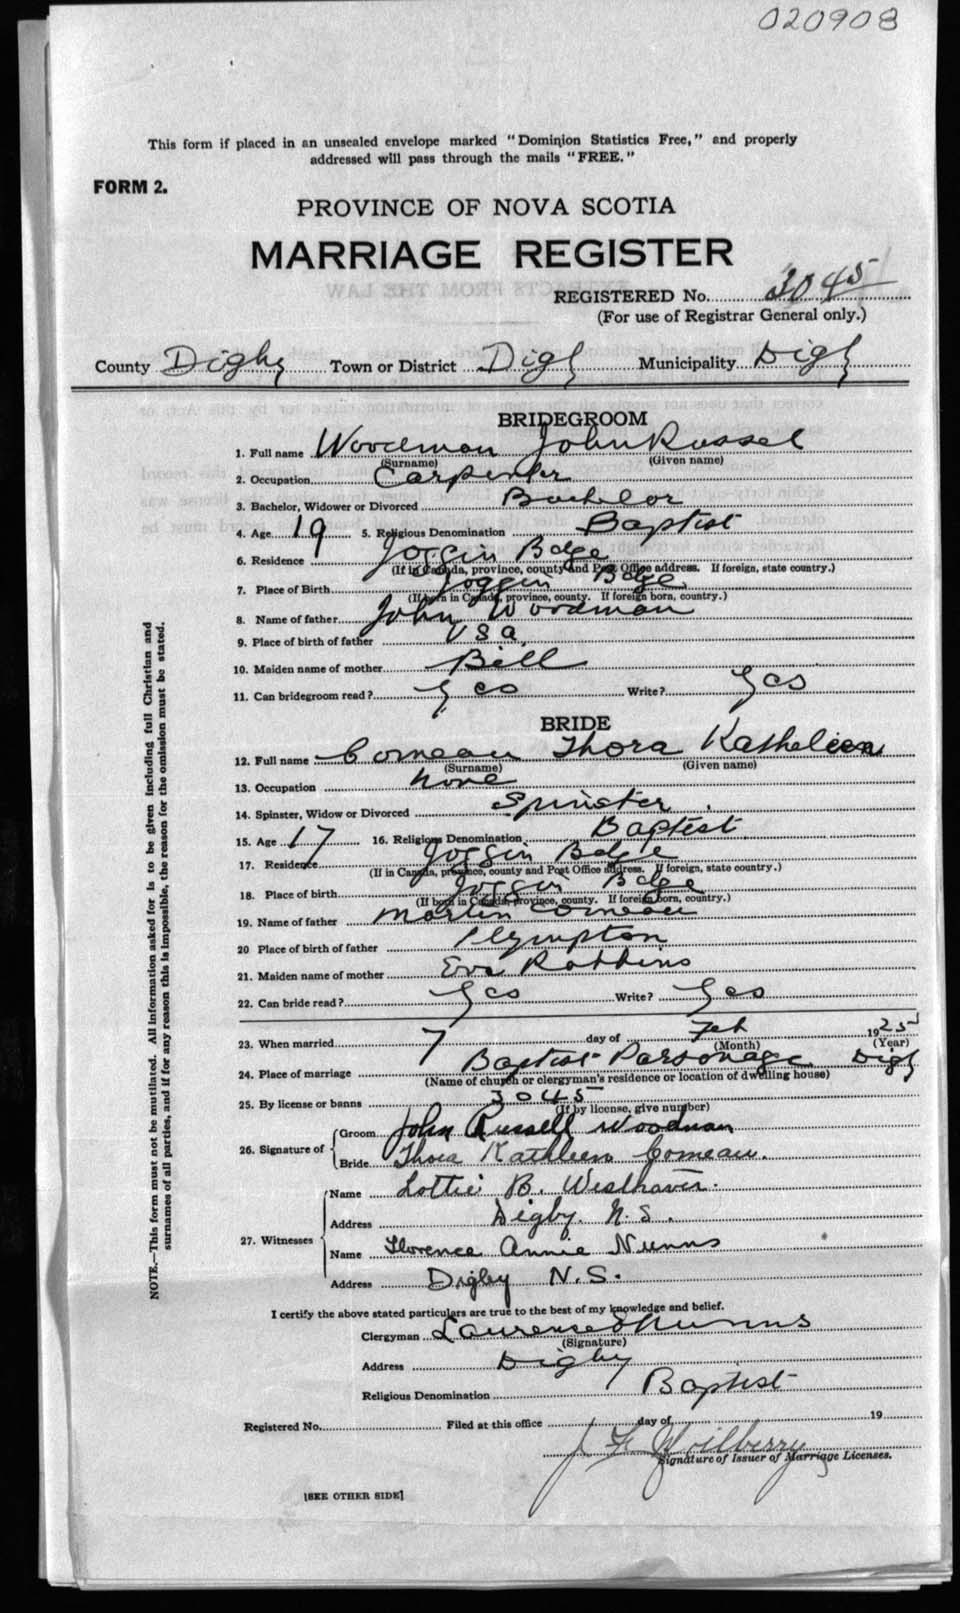 020908
This form if placed in an unsealed envelope marked "Dominion Statistics Free," and properly
addressed will pass through the mails "FREE."
FORM 2.
PROVINCE OF NOVA SCOTIA
MARRIAGE REGISTER
REGISTERED No. 3045
(For use of Registrar General only.)
County Digby Town or District Digby Municipality Digby
BRIDEGROOM
1. Full name Woodman John Russel
(Surname) (Given name)
2. Occupation Carpenter
3. Bachelor, Widower or Divorced Bachelor
4. Age 19 5. Religious Denomination Baptist
6. Residence Joggin Bdge
(If in Canada, province, county and Post Office address. If foreign, state country.)
7. Place of Birth Joggin Bdge
(If born in Canada, province, county. If foreign born, country.)
8. Name of father John Woodman
9. Place of birth of father USA
10. Maiden name of mother Bell
11. Can bridegroom read? Yes Write? Yes
BRIDE
12. Full name Comeau Thora Katheleen
(Surname) (Given name)
13. Occupation None
14. Spinster, Widow or Divorced Spinster
15. Age 17 16. Religious Denomination Baptist
17. Residence Joggin Bdge
(If in Canada, province, county and Post Office address. If foreign, state country.)
18. Place of birth Joggin Bdge
(If born in Canada, province, county. If foreign born, country.)
19. Name of father Martin Comeau
20 Place of birth of father Plympton
21. Maiden name of mother Eva Robbins
22. Can bride read? Yes Write? Yes
23. When married 7 day of Feb 1925
(Month) (Year)
24. Place of marriage Baptist Parsonage Digby
(Name of church or clergyman's residence or location of dwelling house)
25. By license or banns 3045
(If by license, give number)
26. Signature of Groom John Russell Woodman
Bride Thora Kathleen Comeau.
27. Witnesses Name Lottie B. Westhaver.
Address Digby. N.S.
Name Florence Annie Nunns
Address Digby N.S.
I certify the above stated particulars are true to the best of my knowledge and belief.
Clergyman Laurence Nunns
(Signature)
Address Digby
Religious Denomination Baptist
Registered No. Filed at this office day of 19
Signature of Issuer of Marriage Licenses.
[SEE OTHER SIDE]
NOTE.—This form must not be mutilated. All information asked for is to be given including full Christian and
surnames of all parties, and if for any reason this is impossible, the reason for the omission must be stated.